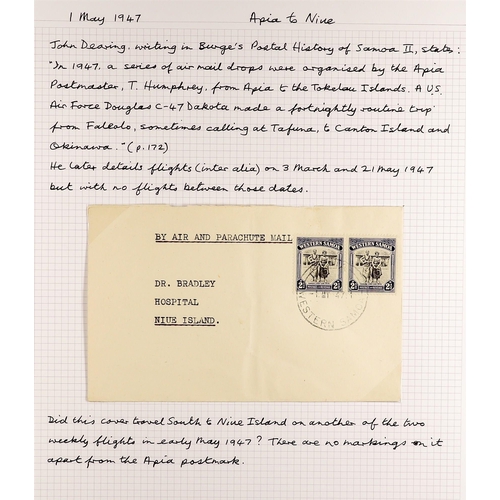 1 May 1947 Apia to Niue
John Dearing, writing in Burge's Postal History of Samoa II, states:
"In 1947, a series of air mail drops were organised by the Apia
Postmaster, T. Humphrey, from Apia to the Tokelau Islands. A U.S.
Air Force Douglas C-47 Dakota made a fortnightly 'routine trip'
from Faleolo, sometimes calling at Tafuna, to Canton Island and
Okinawa." (p.172)
He later details flights (inter alia) on 3 March and 21 May 1947
but with no flights between those dates.
BY AIR AND PARACHUTE MAIL
WESTERN SAMOA WESTERN SAMOA
DR. BRADLEY
HOSPITAL
NIUE ISLAND.
WESTERN SAMOA
Did this cover travel South to Niue Island on another of the two
weekly flights in early May 1947? There are no markings on it
apart from the Apia postmark.